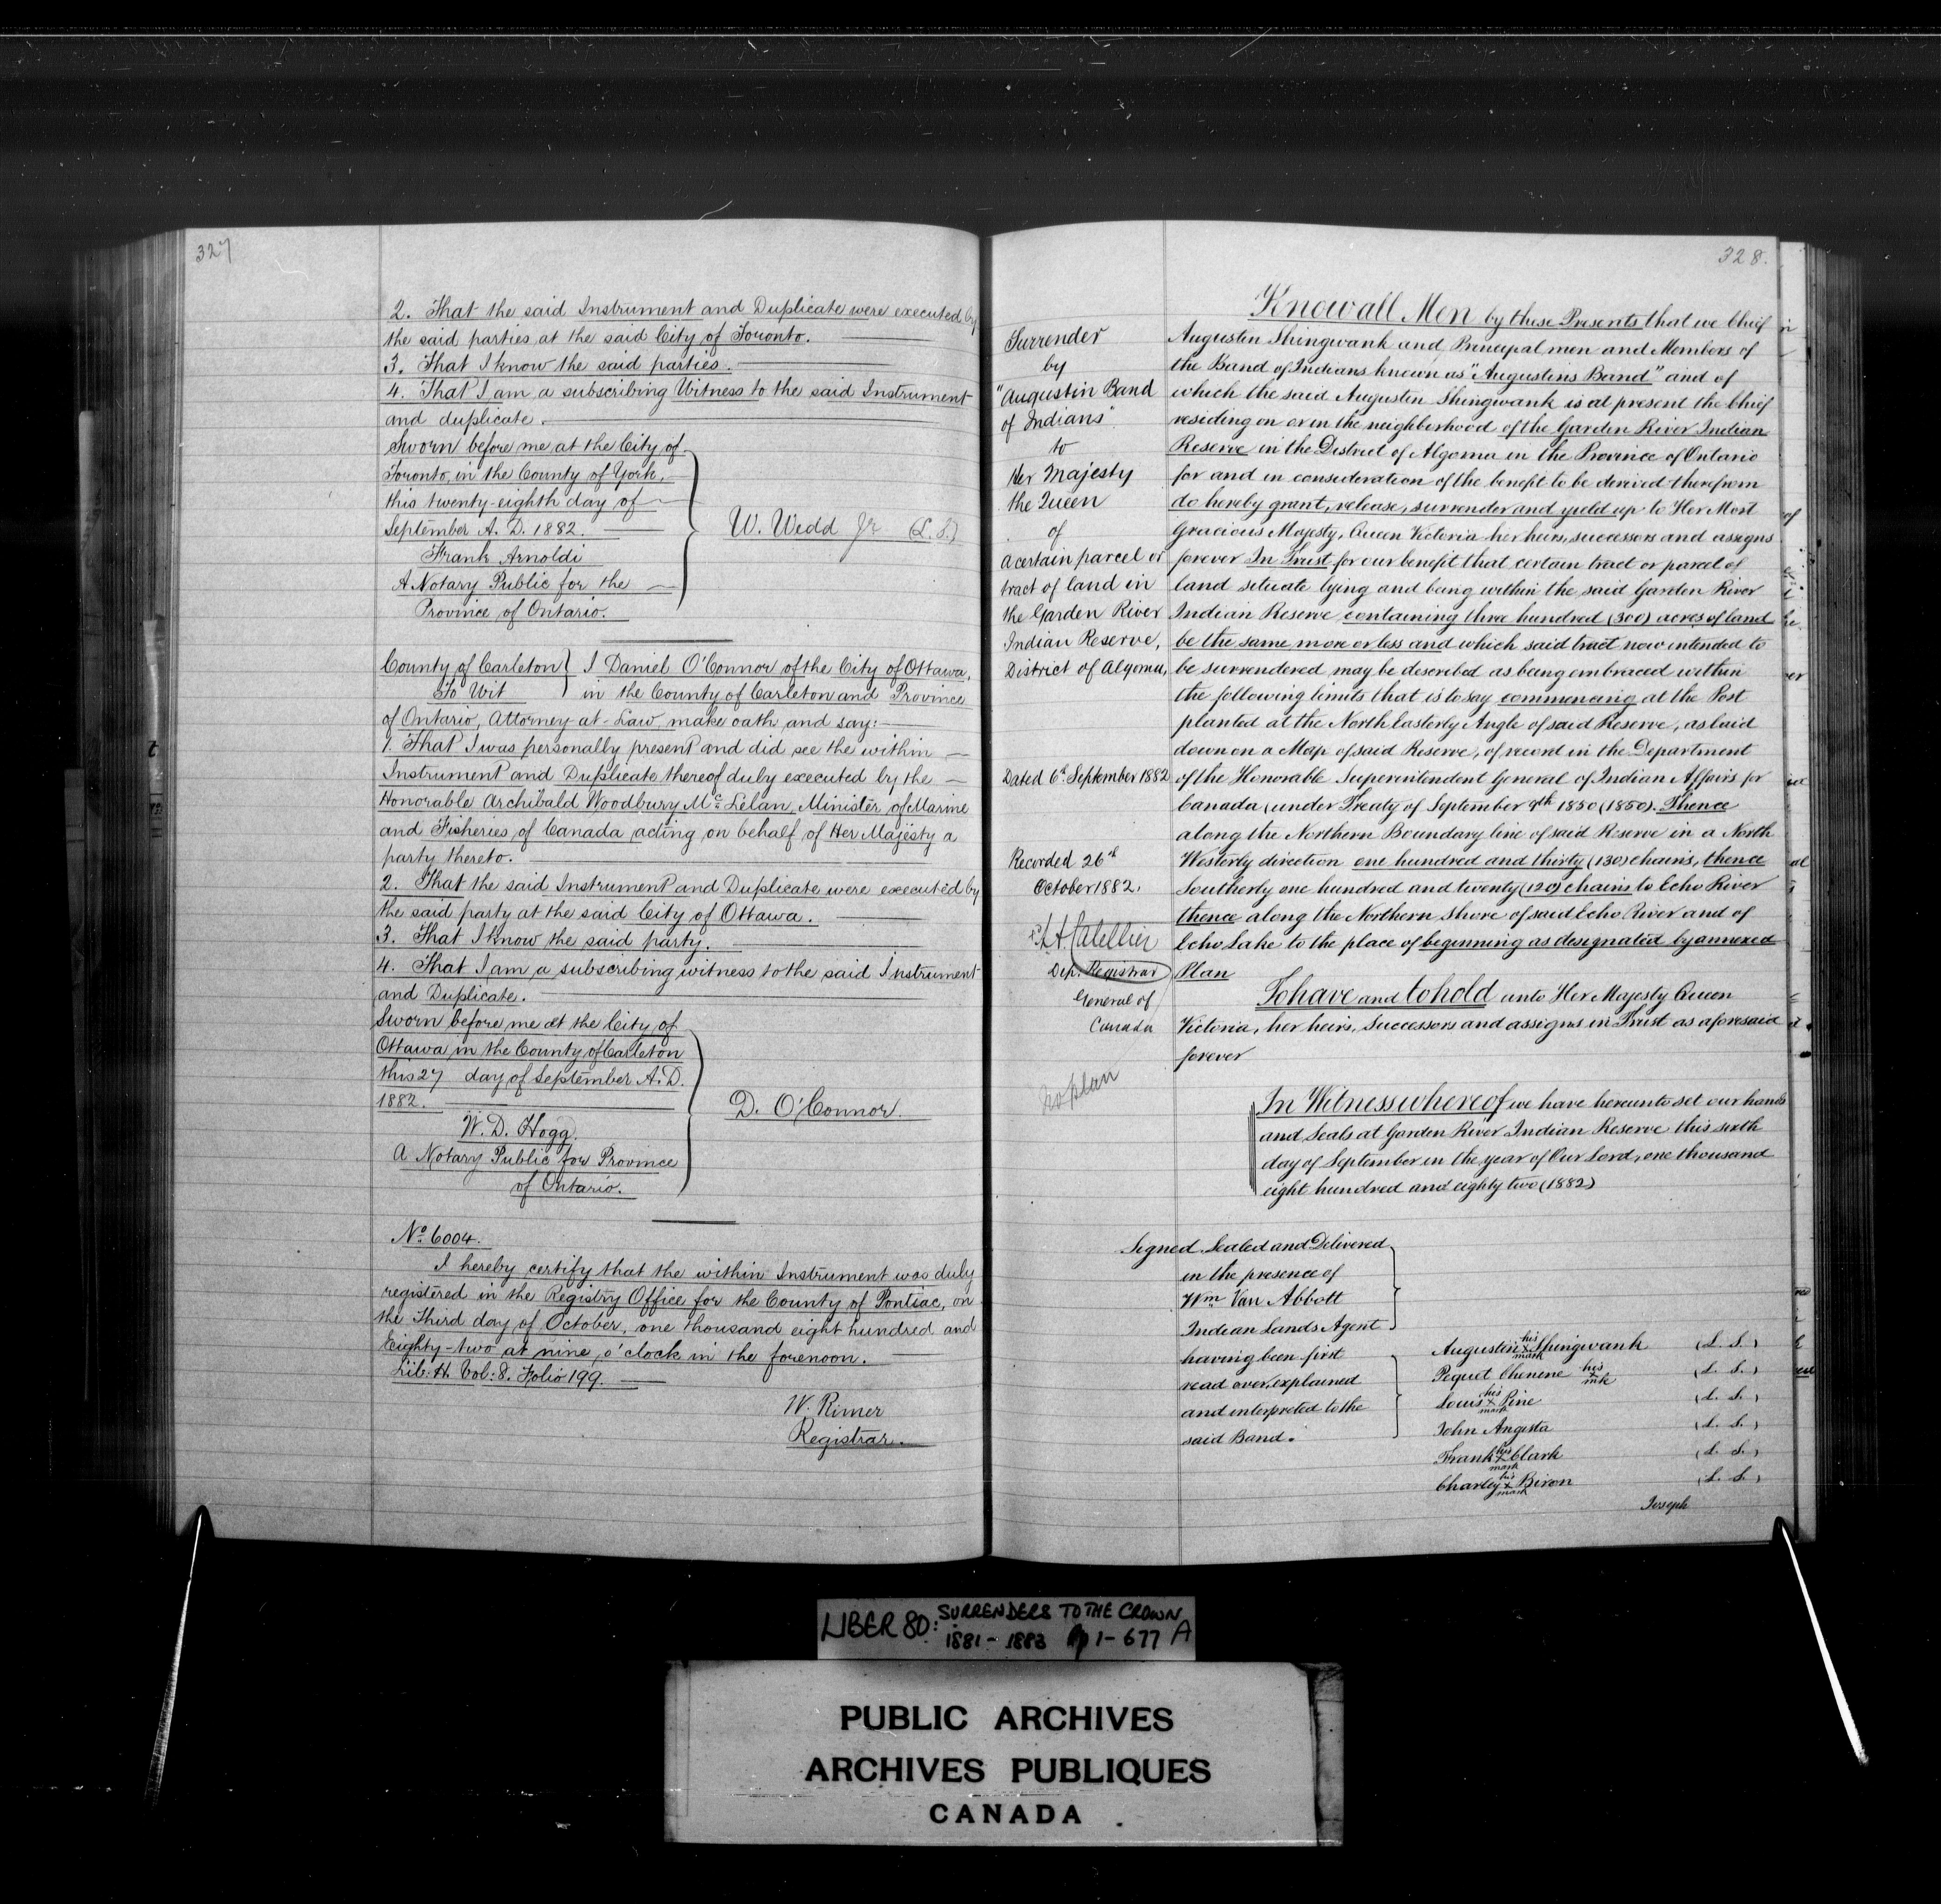 327
2. That the said Instrument and Duplicate were executed by
the said parties at the said City of Toronto.
3. That I know the said parties.
4. That I am a subscribing Witness to the said Instrument
and duplicate.
Sworn before me at the City of
Toronto, in the County of York,
this twenty-eighth day of
September A. D. 1882.
Frank Arnoldi
A Notary Public for the
Province of Ontario.
W. Wedd Jr (L. S.)
County of Carleton
To Wit
I Daniel O'Connor of the City of Ottawa,
in the County of Carleton and Province
of Ontario, Attorney-at-Law make oath and say:
1. That I was personally present and did see the within
Instrument and Duplicate thereof duly executed by the
Honorable Archibald Woodbury McLelan, Minister of Marine
and Fisheries of Canada acting on behalf of Her Majesty a
party thereto.
2. That the said Instrument and Duplicate were executed by
the said party at the said City of Ottawa.
3. That I know the said party.
4. That I am a subscribing witness to the said Instrument
and Duplicate.
Sworn before me at the City of
Ottawa in the County of Carleton
this 27 day of September A. D.
1882.
W. D. Hogg.
A Notary Public for Province
of Ontario.
D. O'Connor.
No. 6004.
I hereby certify that the within Instrument was duly
registered in the Registry Office for the County of Pontiac, on
the Third day of October, one thousand eight hundred and
Eighty-two at nine o'clock in the forenoon.
Lib: H. Vol: 8. Folio 199.
W. Rimer
Registrar.
328.
Surrender
by
"Augustin Band
of Indians"
to
Her Majesty
the Queen
of
a certain parcel or
tract of land in
the Garden River
Indian Reserve,
District of Algoma,
Dated 6th September 1882
Recorded 26th
October 1882.
Dep. Registrar
General of
Canada
No plan
Know all Men by these Presents that we Chief
Augustin Shingwank and Principal men and Members of
the Band of Indians known as "Augustins Band" and of
which the said Augustin Shingwank is at present the Chief
residing on or in the neighborhood of the Garden River Indian
Reserve in the District of Algoma in the Province of Ontario
for and in consideration of the benefit to be derived therefrom
do hereby grant, release, surrender and yield up to Her Most
Gracious Majesty, Queen Victoria her heirs, successors and assigns
forever In Trust for our benefit that certain tract or parcel of
land situate lying and being within the said Garden River
Indian Reserve containing three hundred (300) acres of land
be the same more or less and which said tract now intended to
be surrendered may be described as being embraced within
the following limits that is to say commencing at the Post
planted at the North Easterly Angle of said Reserve, as laid
down on a Map of said Reserve, of record in the Department
of the Honorable Superintendent General of Indian Affairs for
Canada (under Treaty of September 9th 1850 (1850). Thence
along the Northern Boundary line of said Reserve in a North
Westerly direction one hundred and thirty (130) chains, thence
Southerly one hundred and twenty (120) chains to Echo River
thence along the Northern shore of said Echo River and of
Echo Lake to the place of beginning as designated by annexed
Plan
To have and to hold unto Her Majesty Queen
Victoria, her heirs, Successors and assigns in Trust as aforesaid
forever
In Witness whereof we have hereunto set our hands
and Seals at Garden River Indian Reserve this sixth
day of September in the year of Our Lord, one thousand
eight hundred and eighty two (1882)
Signed, Sealed and Delivered
in the presence of
Wm Van Abbott
Indian Lands Agent
having been first
read over, explained
and interpreted to the
said Band.
Augustin his x mark Shingwank (L. S.)
Pequet Chenene his x mk (L. S.)
Louis his x mark Pine (L. S.)
John Angista (L. S.)
Frank his x mark Clark (L. S.)
Charley his x mark Biron (L. S.)
Joseph
LIBER 80: SURRENDERS TO THE CROWN
1881 - 1883 pp 1 - 677 A
PUBLIC ARCHIVES
ARCHIVES PUBLIQUES
CANADA